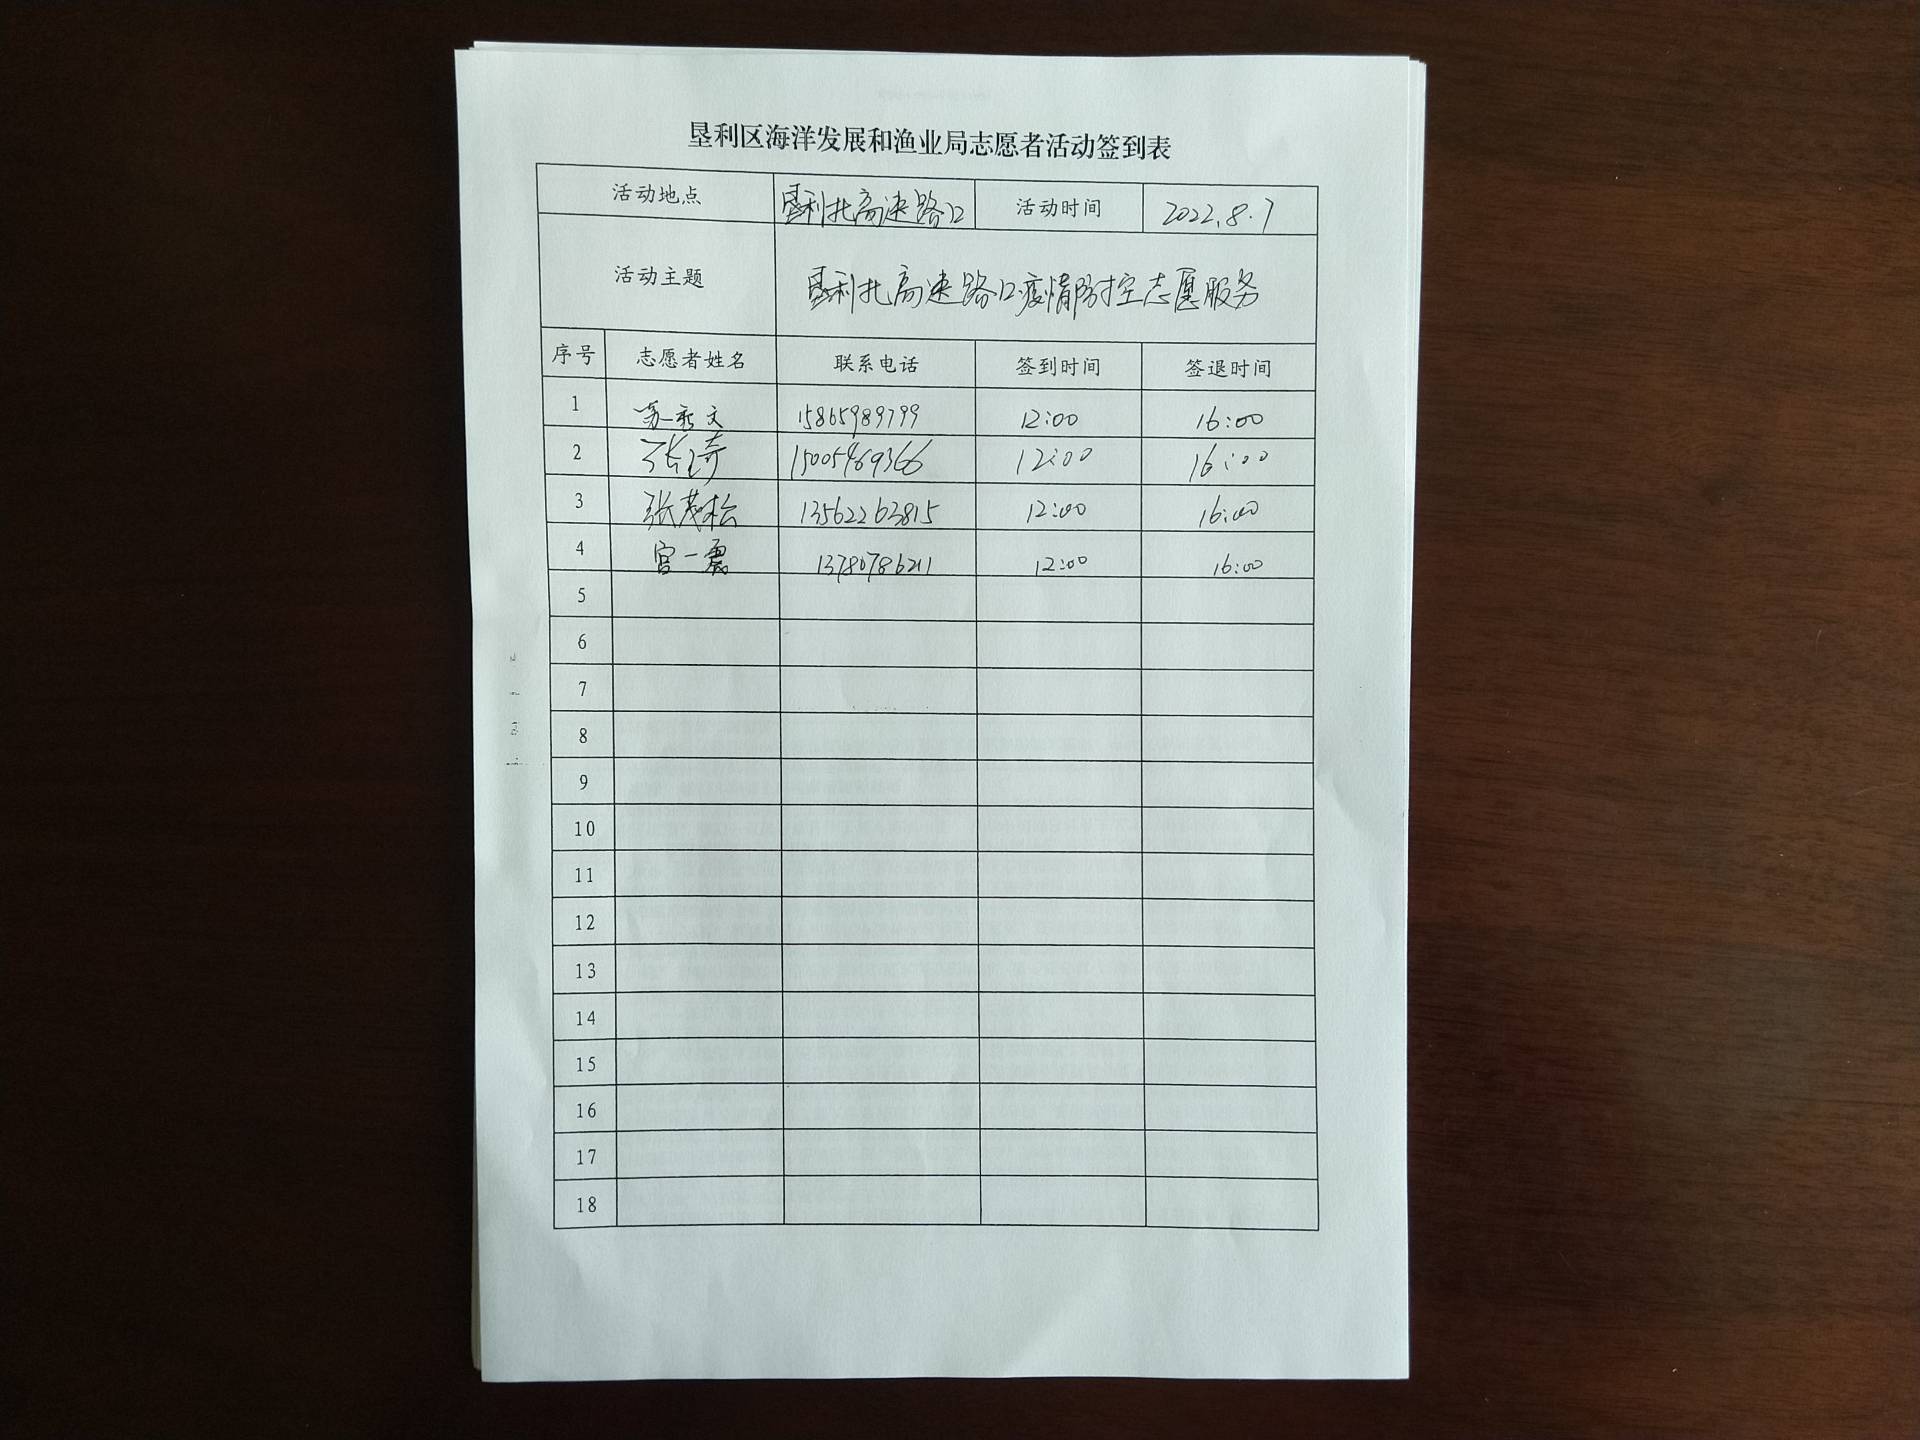 垦利区海洋发展和渔业局志愿者活动签到表
活动地点 垦利北高速路口 活动时间 2022.8.7
活动主题 垦利北高速路口疫情防控志愿服务
序号 志愿者姓名 联系电话 签到时间 签退时间
1 苏永文 15865989799 12:00 16:00
2 张琦 15005469366 12:00 16:00
3 张茂松 13562263815 12:00 16:00
4 宫一震 13780786211 12:00 16:00
5
6
7
8
9
10
11
12
13
14
15
16
17
18